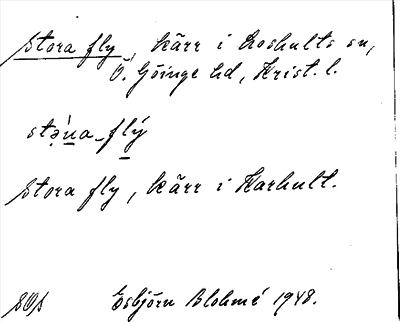 Stora fly, kärr i Loshults sn,
Ö. Göinge hd, Krist. l.
stǝ̀u̱a-flý
Stora fly, kärr i Harhult.
SOS Esbjörn Blohmé 1948.